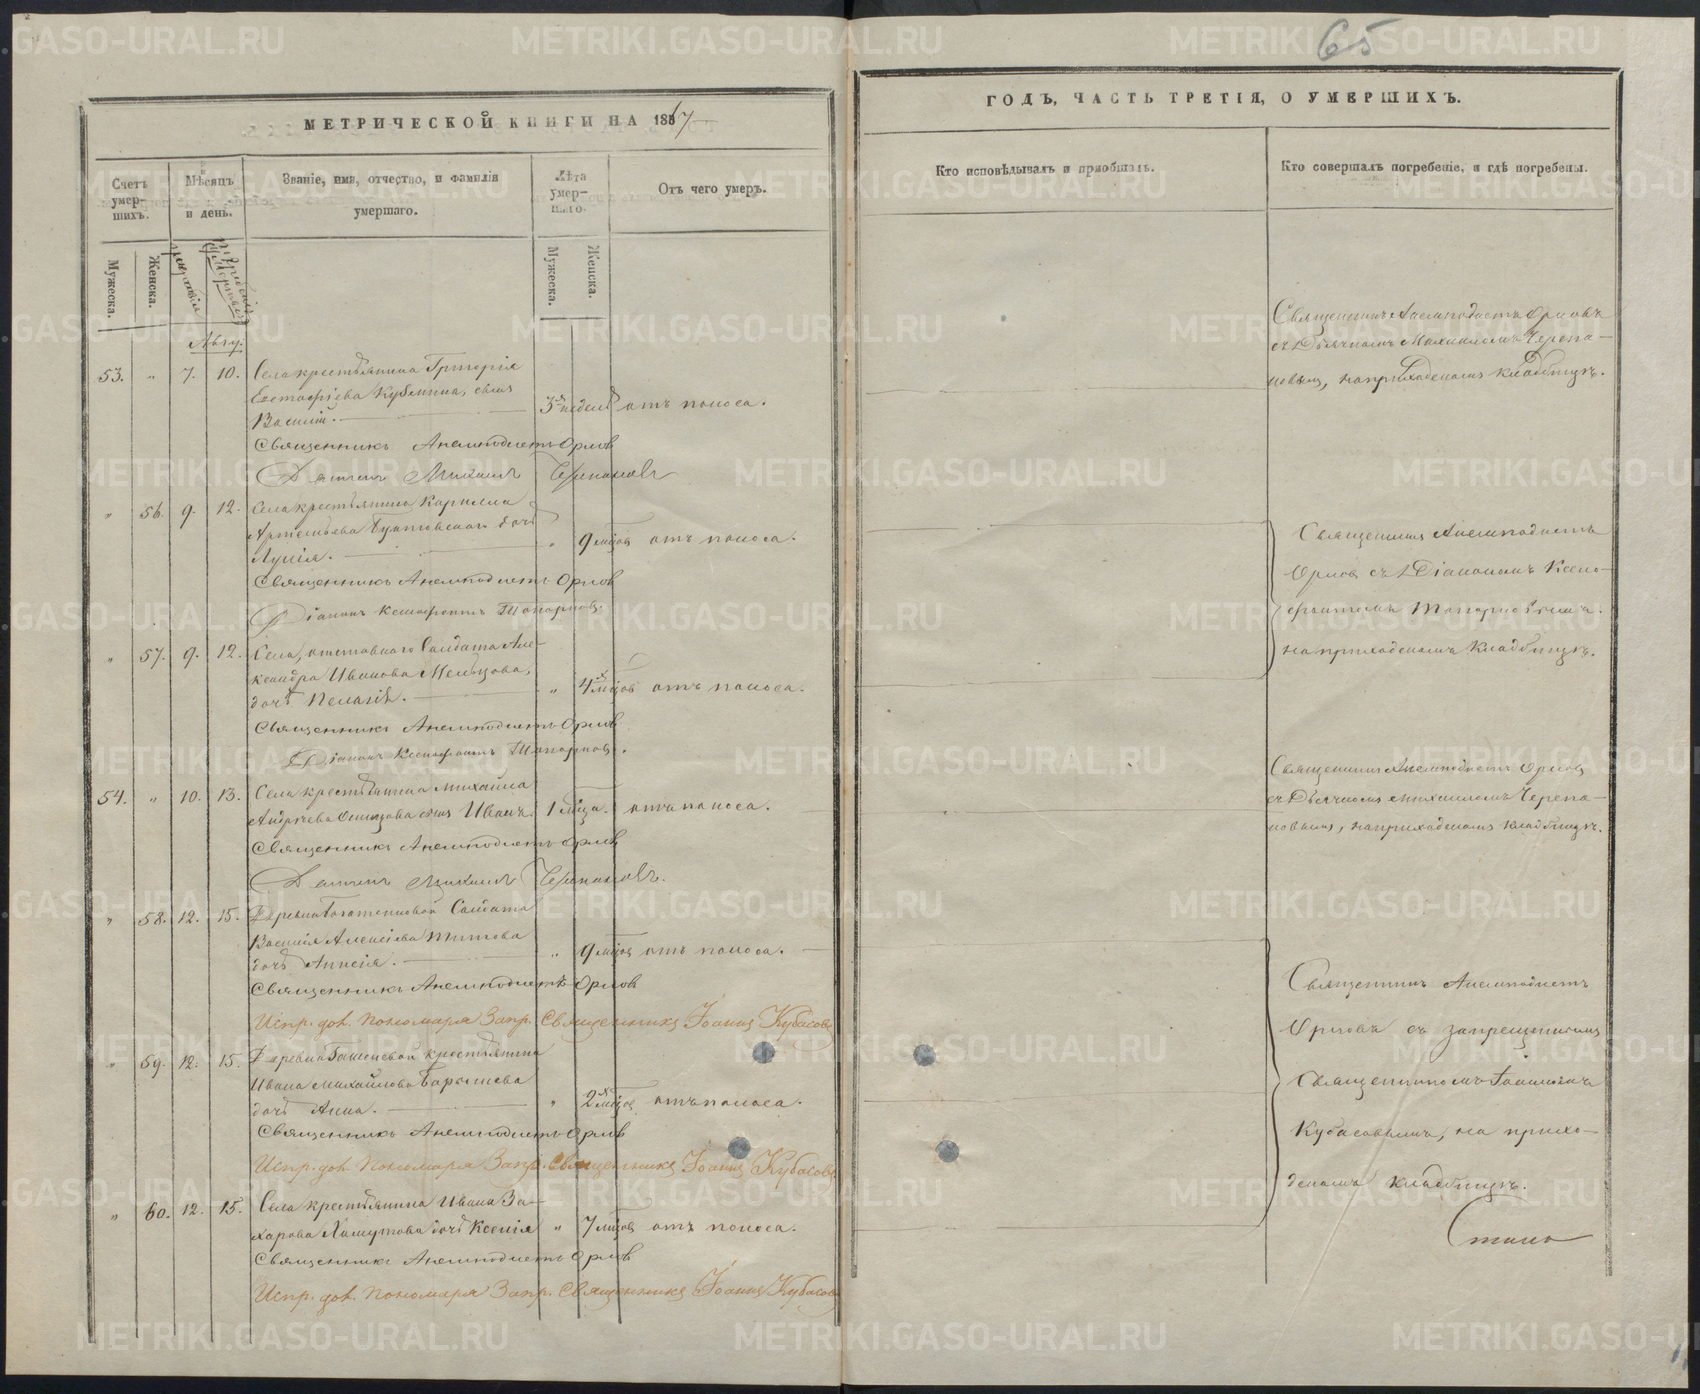 65
МЕТРИЧЕСКОЙ КНИГИ НА 1867
ГОДЪ, ЧАСТЬ ТРЕТІЯ, О УМЕРШИХЪ.
Счетъ умер-
шихъ.
Мѣсяцъ
и день.
Званіе, имя, отчество, и фамилія
умершаго.
Лѣта
умер-
шаго.
Отъ чего умеръ.
Кто исповѣдывалъ и пріобщалъ.
Кто совершалъ погребеніе, и гдѣ погребены.
Мужеска.
Женска.
Мужеска.
Женска.
Авгу.
53. " 7. 10. Села крестьянина Григорія
Евстафіева сынъ
Василій. 3 недель отъ поноса.
Священникъ Анемподистъ Орловъ
Дьячекъ Михаилъ Черепановъ
Священникъ Анемподистъ Орловъ
съ Дьячкомъ Михаиломъ Черепа-
новымъ, на приходскомъ кладбищѣ.
" 56. 9. 12. Села крестьянина Кирилла
Артемьева дочь
" 9 мцов отъ поноса.
Священникъ Анемподистъ Орловъ
Діаконъ Ксенофонтъ Топорковъ.
" 57. 9. 12. Села, отставнаго Солдата Але-
ксандра Иванова Мельцова,
дочь Пелагія. " 4 мцов отъ поноса.
Священникъ Анемподистъ Орловъ
Діаконъ Ксенофонтъ Топорковъ.
Священникъ Анемподистъ
Орловъ съ Діакономъ Ксено-
фонтомъ Топорковымъ.
на приходскомъ кладбищѣ.
54. " 10. 13. Села крестьянина Михаила
Андреева сынъ Иванъ. 1 мца. отъ поноса.
Священникъ Анемподистъ Орловъ
Дьячекъ Михаилъ Черепановъ.
Священникъ Анемподистъ Орловъ
съ Дьячкомъ Михаиломъ Черепа-
новымъ, на приходскомъ кладбищѣ.
" 58. 12. 15. Деревни Солдата
Василія Алексіева Титова
дочь " 9 мцов отъ поноса.
Священникъ Анемподистъ Орловъ
Испр. дол. Пономаря Запр. Священникъ Іоаннъ Кубасовъ
" 59. 12. 15. Деревни крестьянина
Ивана Михайлова Барышева
дочь Анна. " 2 мцов отъ поноса.
Священникъ Анемподистъ Орловъ
Испр. дол. Пономаря Запр. Священникъ Іоаннъ Кубасовъ
" 60. 12. 15. Села крестьянина Ивана За-
харова дочь Ксенія " 7 мцов отъ поноса.
Священникъ Анемподистъ Орловъ
Испр. дол. Пономаря Запр. Священникъ Іоаннъ Кубасовъ
Священникъ Анемподистъ
Орловъ съ запрещеннымъ
Священникомъ Іоанномъ
Кубасовымъ, на прихо-
дскомъ кладбищѣ.
METRIKI.GASO-URAL.RU